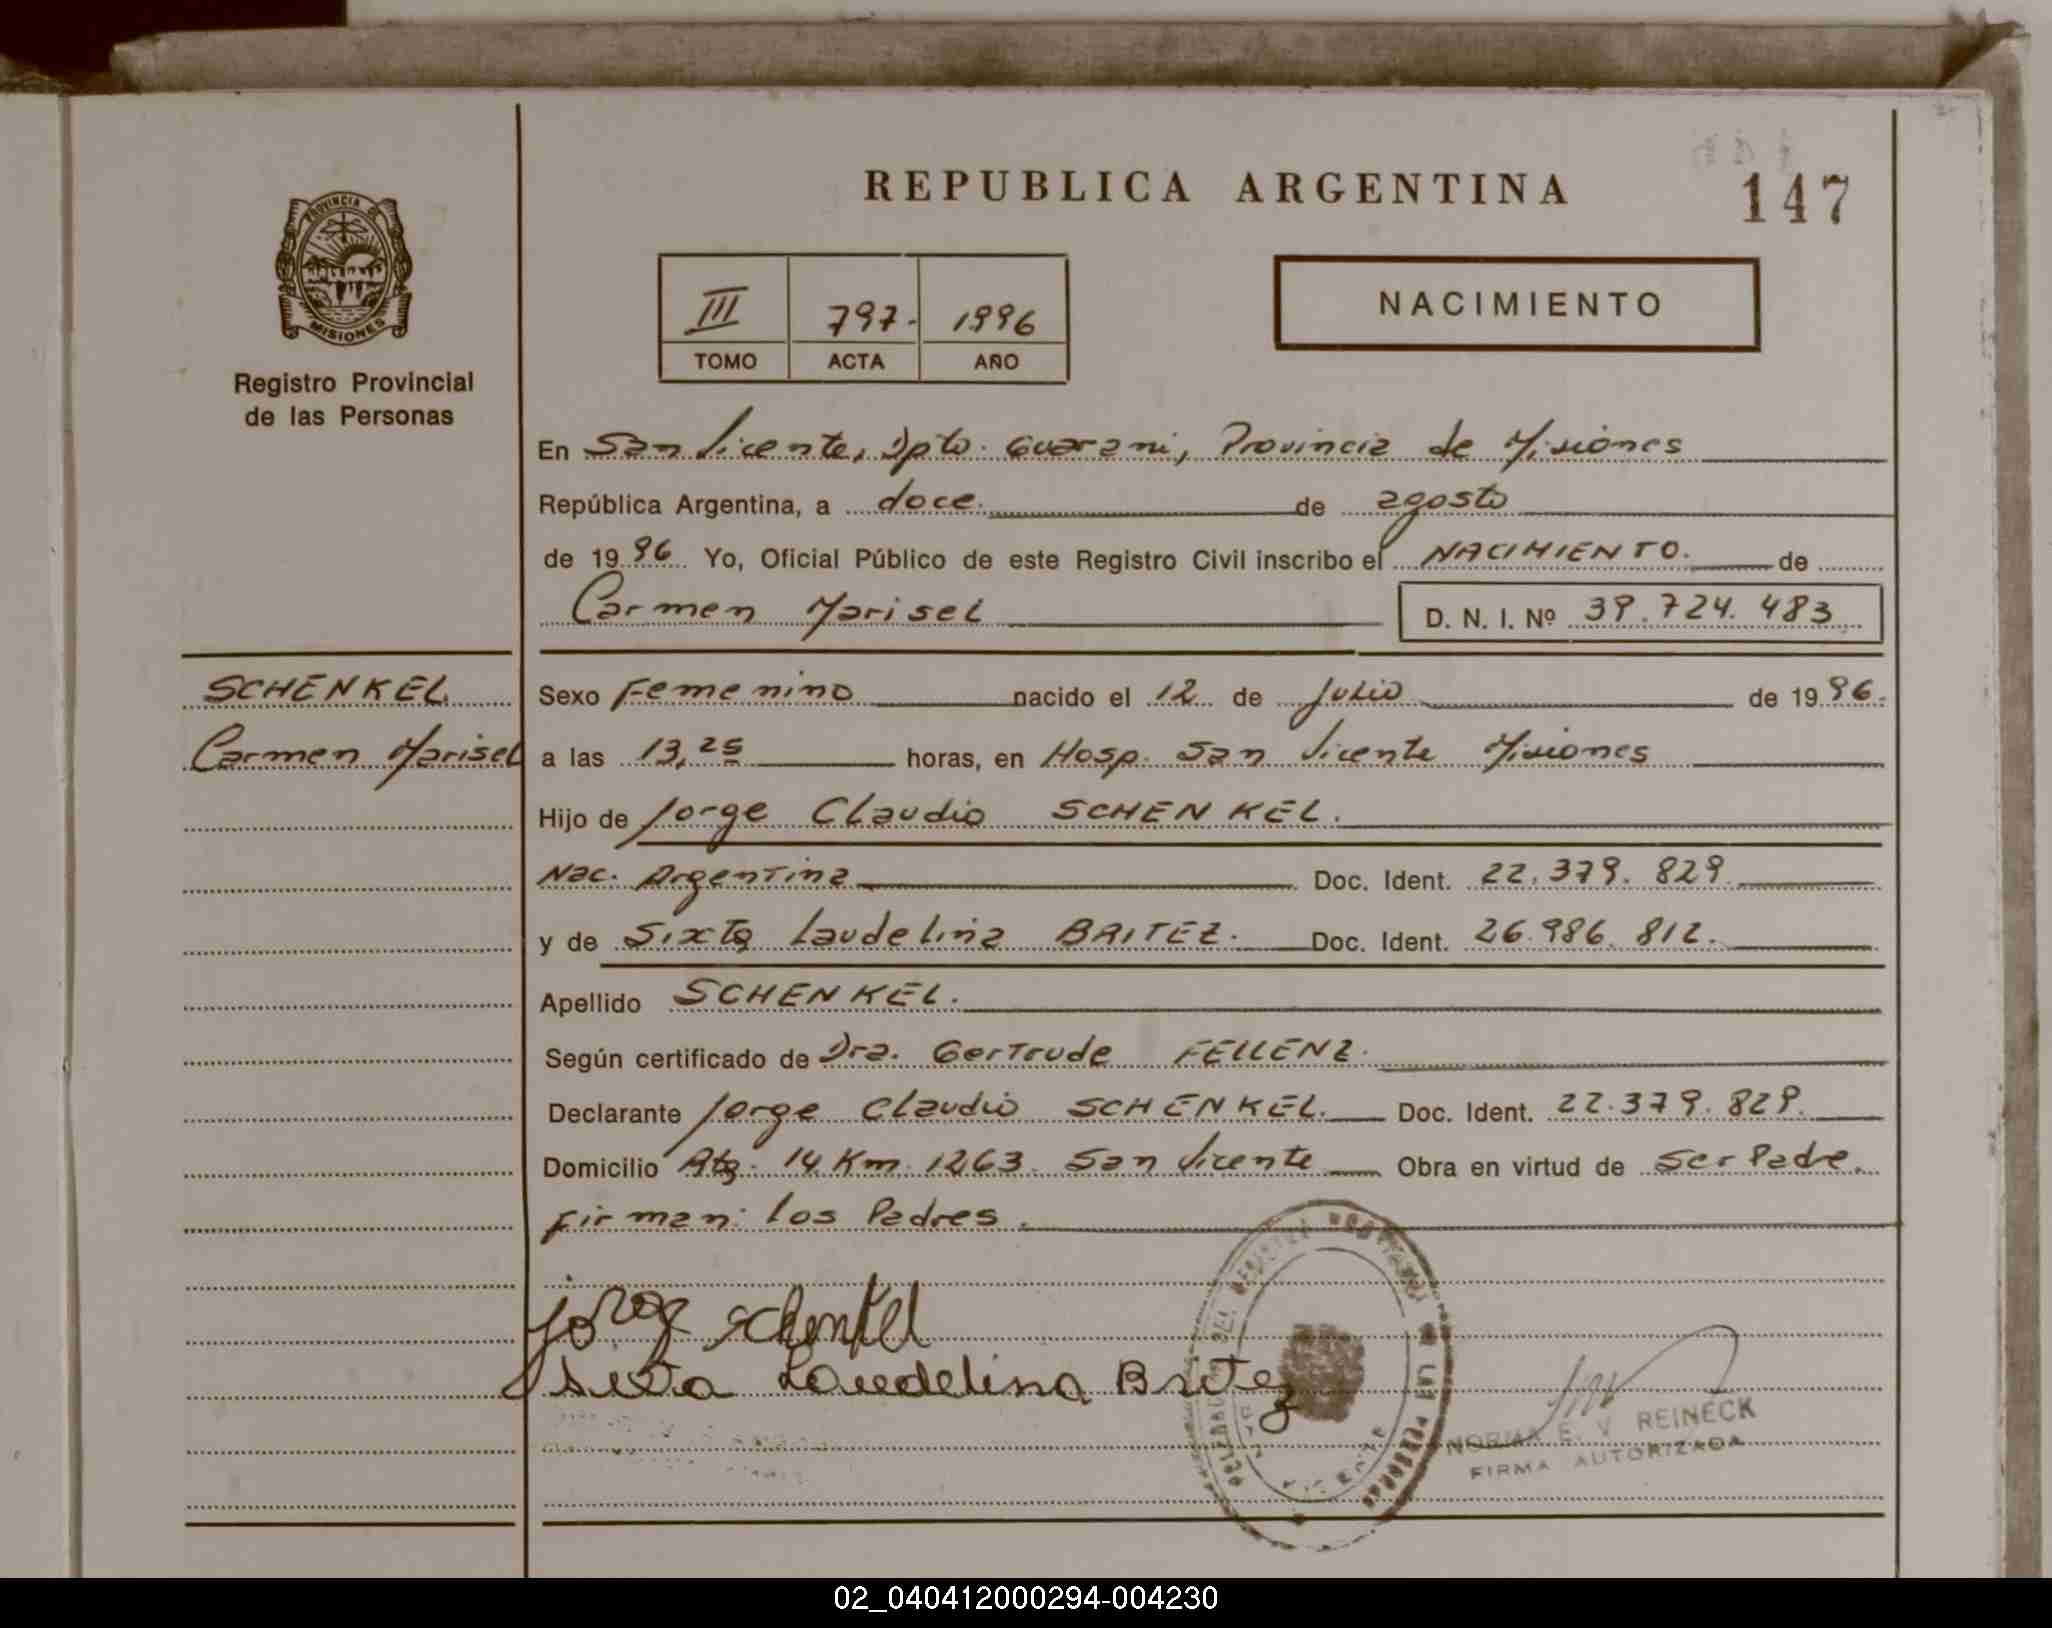 REPUBLICA ARGENTINA
147
PROVINCIA DE
MISIONES
Registro Provincial
de las Personas
III 797.- 1996
TOMO ACTA AÑO
NACIMIENTO
En San Vicente, Dpto. Guarani, Provincia de Misiones
República Argentina, a doce. de agosto
de 1996. Yo, Oficial Público de este Registro Civil inscribo el NACIMIENTO. de
Carmen Marisel
D. N. I. Nº 39.724.483
SCHENKEL
Carmen Marisel
Sexo Femenino nacido el 12 de Julio de 1996.
a las 13,25 horas, en Hosp. San Vicente Misiones
Hijo de Jorge Claudio SCHENKEL.
Nac. Argentina Doc. Ident. 22.379.829
y de Sixta Laudelina BRITEZ. Doc. Ident. 26.986.812.
Apellido SCHENKEL.
Según certificado de Dra. Gertrude FELLENZ.
Declarante Jorge Claudio SCHENKEL. Doc. Ident. 22.379.829.
Domicilio Rta. 14 Km. 1263. San Vicente Obra en virtud de Ser Padre.
Firman: los Padres.
jorge schenkel
Sixta Laudelina Britez
LAS PERSONAS
VICENTE
NORMA E. V. REINECK
FIRMA AUTORIZADA
02_040412000294-004230